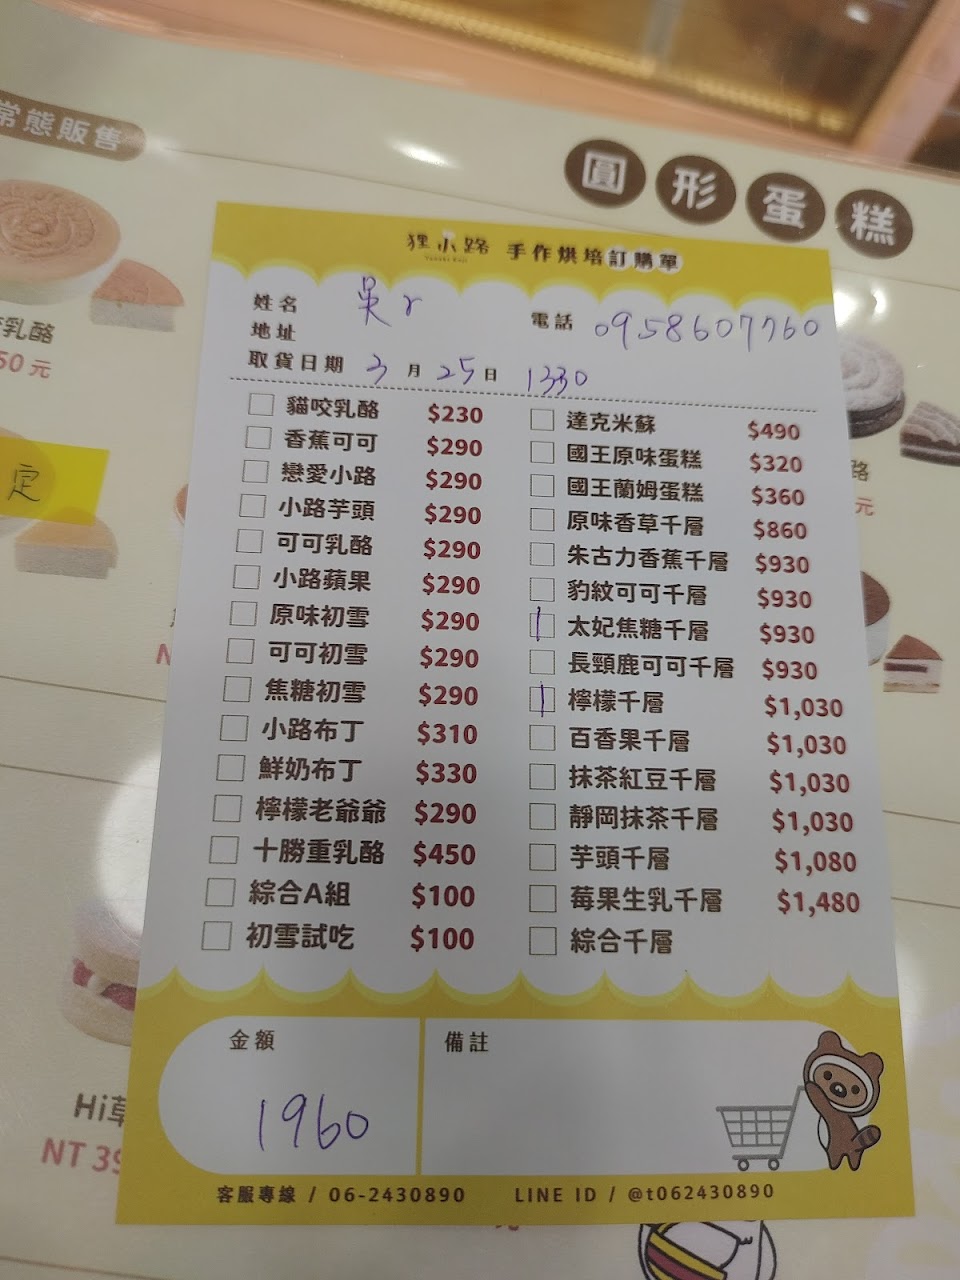 常態販售
圓形蛋糕
狸小路 手作烘培訂購單
姓名 吳r 電話 0958607760
地址
取貨日期 3月25日 1330
貓咬乳酪 $230
香蕉可可 $290
戀愛小路 $290
小路芋頭 $290
可可乳酪 $290
小路蘋果 $290
原味初雪 $290
可可初雪 $290
焦糖初雪 $290
小路布丁 $310
鮮奶布丁 $330
檸檬老爺爺 $290
十勝重乳酪 $450
綜合A組 $100
初雪試吃 $100
達克米蘇 $490
國王原味蛋糕 $320
國王蘭姆蛋糕 $360
原味香草千層 $860
朱古力香蕉千層 $930
豹紋可可千層 $930
1 太妃焦糖千層 $930
長頸鹿可可千層 $930
1 檸檬千層 $1,030
百香果千層 $1,030
抹茶紅豆千層 $1,030
靜岡抹茶千層 $1,030
芋頭千層 $1,080
莓果生乳千層 $1,480
綜合千層
金額 備註
1960
客服專線 / 06-2430890 LINE ID / @t062430890
乳酪
50元
定
路
元
Hi草
NT 39